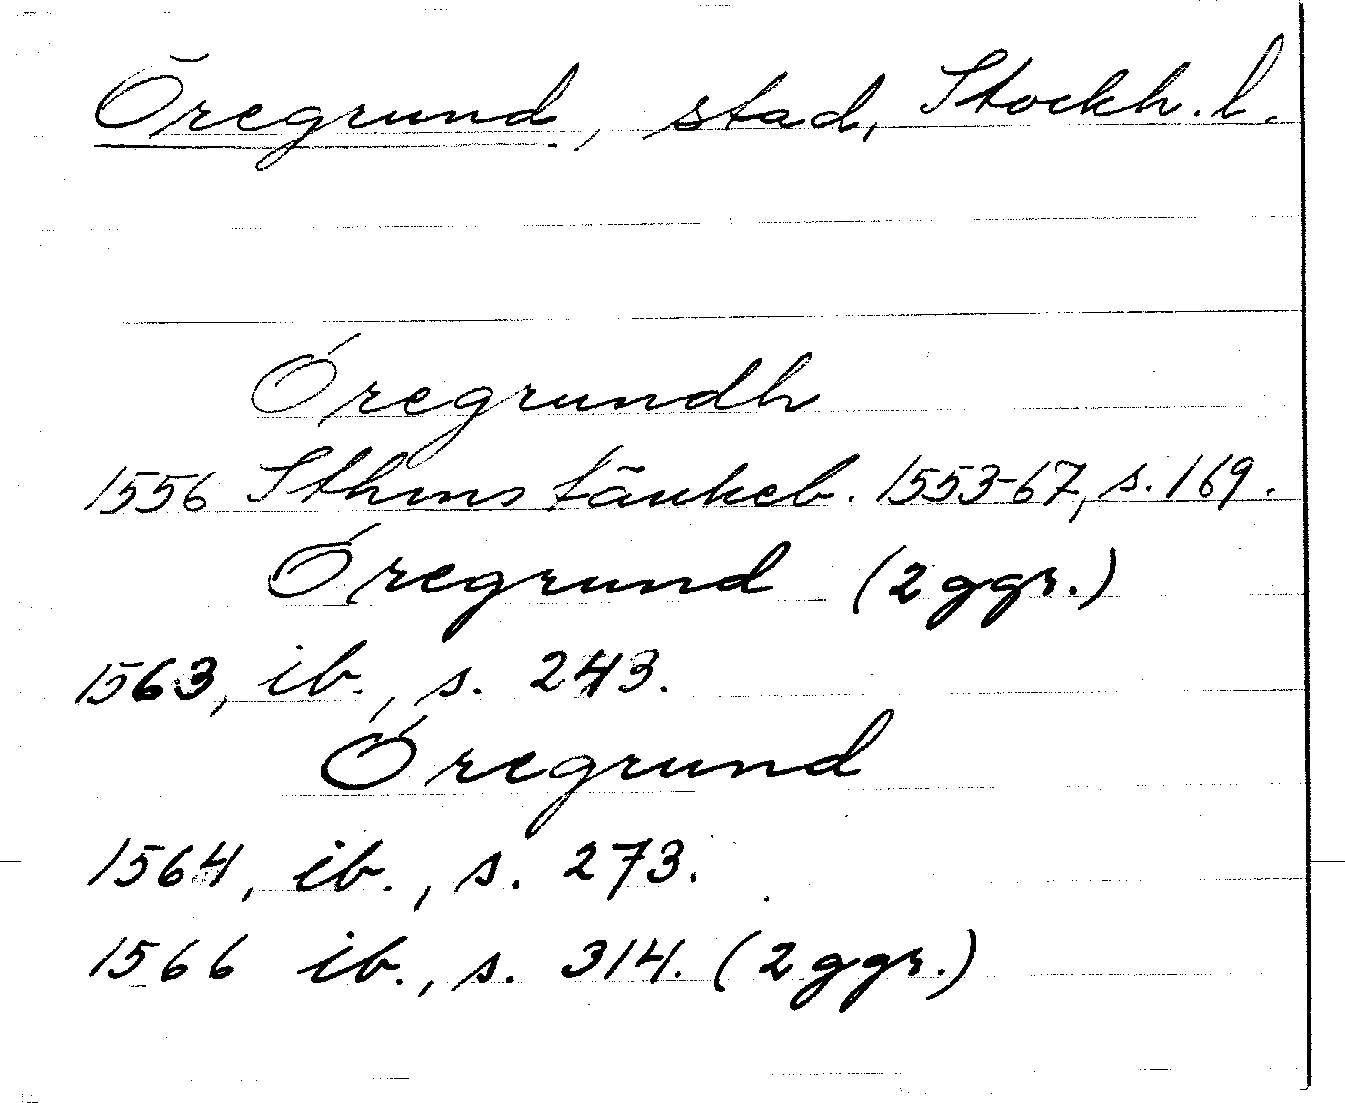 Öregrund, stad, Stockh. l.
Óregrundh
1556 Sthms tänkeb. 1553-67, s. 169.
Óregrund (2 ggr.)
1563, ib., s. 243.
Óregrund
1564, ib., s. 273.
1566 ib., s. 314. (2 ggr.)